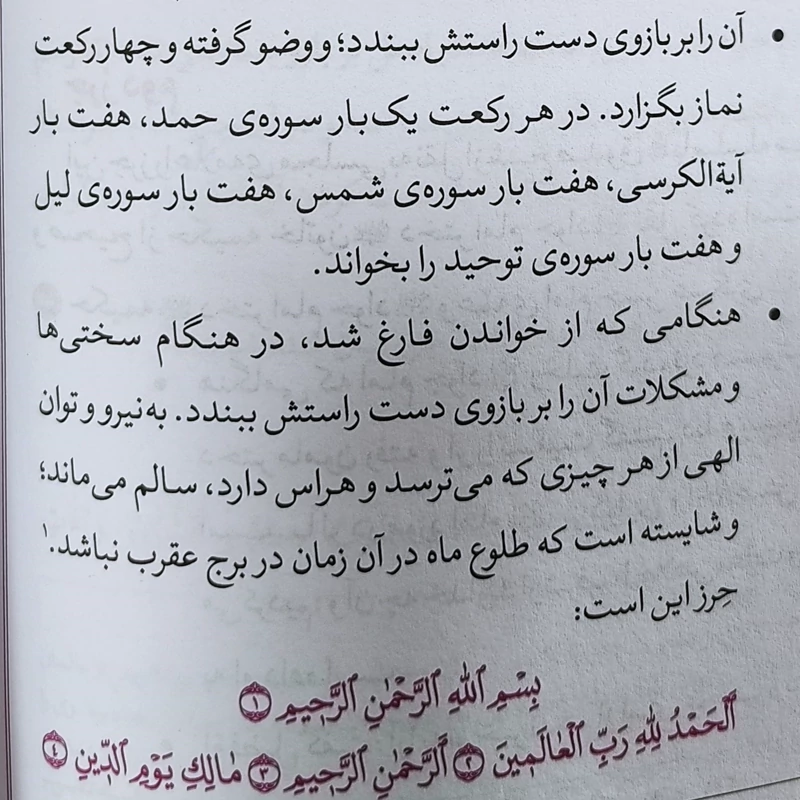 • آن را بر بازوی دست راستش ببندد؛ و وضو گرفته و چهار رکعت
نماز بگزارد. در هر رکعت یک‌بار سوره‌ی حمد، هفت بار
آیةالکرسی، هفت بار سوره‌ی شمس، هفت بار سوره‌ی لیل
و هفت بار سوره‌ی توحید را بخواند.
• هنگامی که از خواندن فارغ شد، در هنگام سختی‌ها
و مشکلات آن را بر بازوی دست راستش ببندد. به نیرو و توان
الهی از هر چیزی که می‌ترسد و هراس دارد، سالم می‌ماند؛
و شایسته است که طلوع ماه در آن زمان در برج عقرب نباشد.۱
حِرز این است:
بِسْمِ ٱللَّهِ ٱلرَّحْمَٰنِ ٱلرَّحِيمِ ﴿١﴾
ٱلْحَمْدُ لِلَّهِ رَبِّ ٱلْعَالَمِينَ ﴿٢﴾ ٱلرَّحْمَٰنِ ٱلرَّحِيمِ ﴿٣﴾ مَالِكِ يَوْمِ ٱلدِّينِ ﴿٤﴾